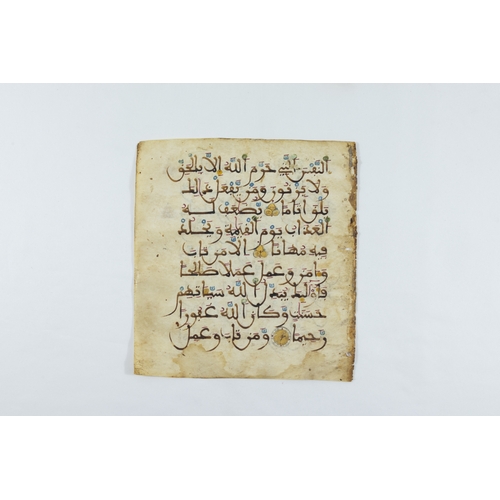 النفس التي حرم الله الا بالحق
ولا يزنون ومن يفعل ذلك
يلق اثاما يضعف له
العذاب يوم القيمة ويخلد
فيه مهانا الا من تاب
وامن وعمل عملا صالحا
فاوليك يبدل الله سياتهم
حسنت وكان الله غفورا
رحيما ومن تاب وعمل